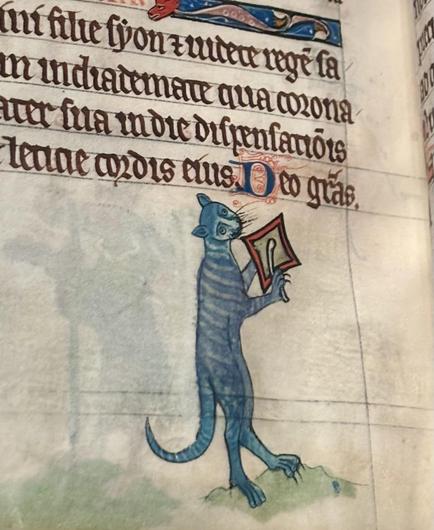 ini filie syon ⁊ uidete regē sa
m in diademate qua corona
ater sua in die dispensatiōis
leticie cordis eius. Deo grās.